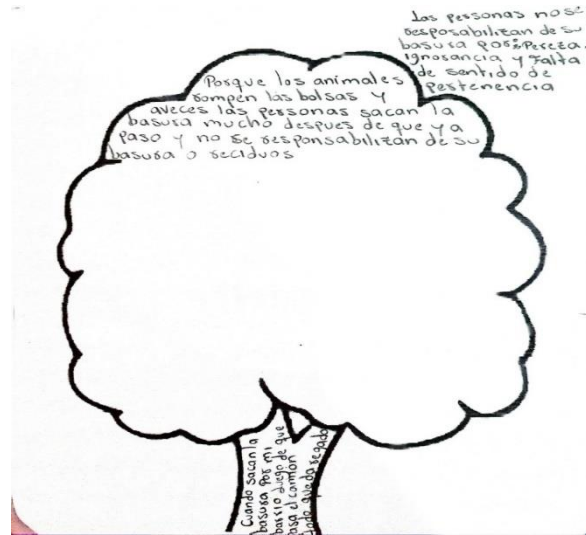 Las personas no se
resposabilizan de su
basura por: Pereza,
ignorancia y falta
de sentido de
pertenencia
Porque los animales
rompen las bolsas y
aveces las personas sacan la
basura mucho despues de que ya
paso y no se responsabilizan de su
basura o reciduos
Cuando sacan la
basura por mi
barrio luego de que
pasa el camión
todo queda regado